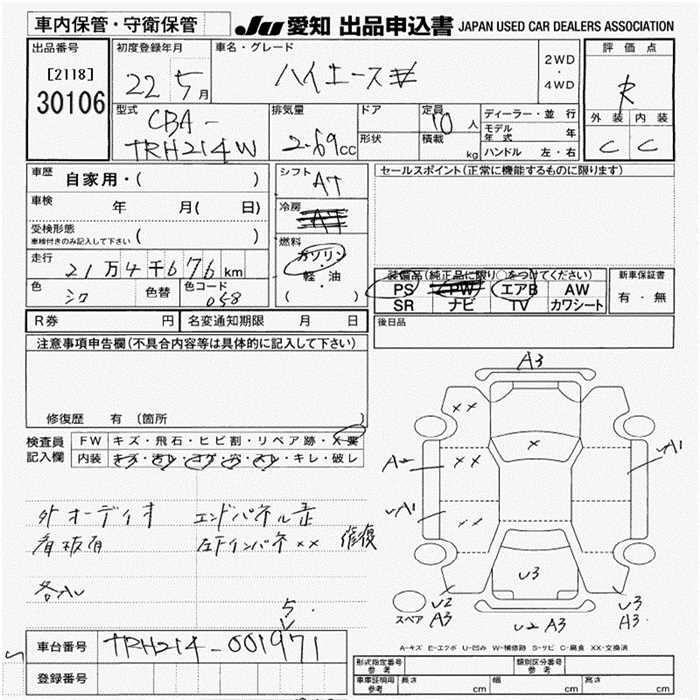 車内保管・守衛保管
JU 愛知 出品申込書 JAPAN USED CAR DEALERS ASSOCIATION
出品番号
[2118]
30106
初度登録年月
22 5月
車名・グレード
ハイエース
2WD
・
4WD
評価点
R
外装 内装
C C
型式
CBA-
TRH214W
排気量
2.69cc
ドア
形状
定員
10人
積載
kg
ディーラー・並行
モデル年式 年
ハンドル 左・右
車歴 自家用・( )
車検 年 月( 日)
受検形態
車検付きのみ記入して下さい ( )
走行 21万4千676km
色 シロ 色替 色コード 058
シフト
AT
冷房
燃料
ガソリン
・
軽・油
( )
セールスポイント(正常に機能するものに限ります)
装備品(純正品に限り○をつけてください)
PS PW エアB AW
SR ナビ TV カワシート
新車保証書
有・無
R券 円 名変通知期限 月 日
後日品
注意事項申告欄(不具合内容等は具体的に記入して下さい)
修復歴 有 〔箇所 〕
検査員
記入欄
FW キズ・飛石・ヒビ割・リペア跡・X要
内装 キズ・汚レ・コゲ・穴・スレ・キレ・破レ
外オーディオ エンドパネル歪
看板有 左下インパネ×× 修復
A3
××
×
A2
××
A1
A1
U3
U2
A3
U2 A3
U3
A3
スペア
A-キズ E-エクボ U-凹み W-補修跡 S-サビ C-腐食 XX-交換済
5.
車台番号 TRH214-001971
登録番号
形式指定番号
参考
類別区分番号
参考
車庫証明用
参考
長さ cm 幅 cm 高さ cm